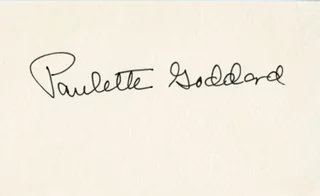 Paulette Goddard